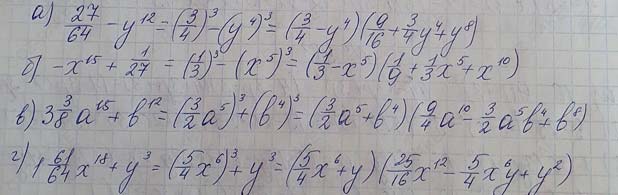 а) 27/64 - y^12 = (3/4)^3 - (y^4)^3 = (3/4 - y^4)(9/16 + 3/4 y^4 + y^8)
б) -x^15 + 1/27 = (1/3)^3 - (x^5)^3 = (1/3 - x^5)(1/9 + 1/3 x^5 + x^10)
в) 3 3/8 a^15 + b^12 = (3/2 a^5)^3 + (b^4)^3 = (3/2 a^5 + b^4)(9/4 a^10 - 3/2 a^5 b^4 + b^8)
г) 1 61/64 x^18 + y^3 = (5/4 x^6)^3 + y^3 = (5/4 x^6 + y)(25/16 x^12 - 5/4 x^6 y + y^2)